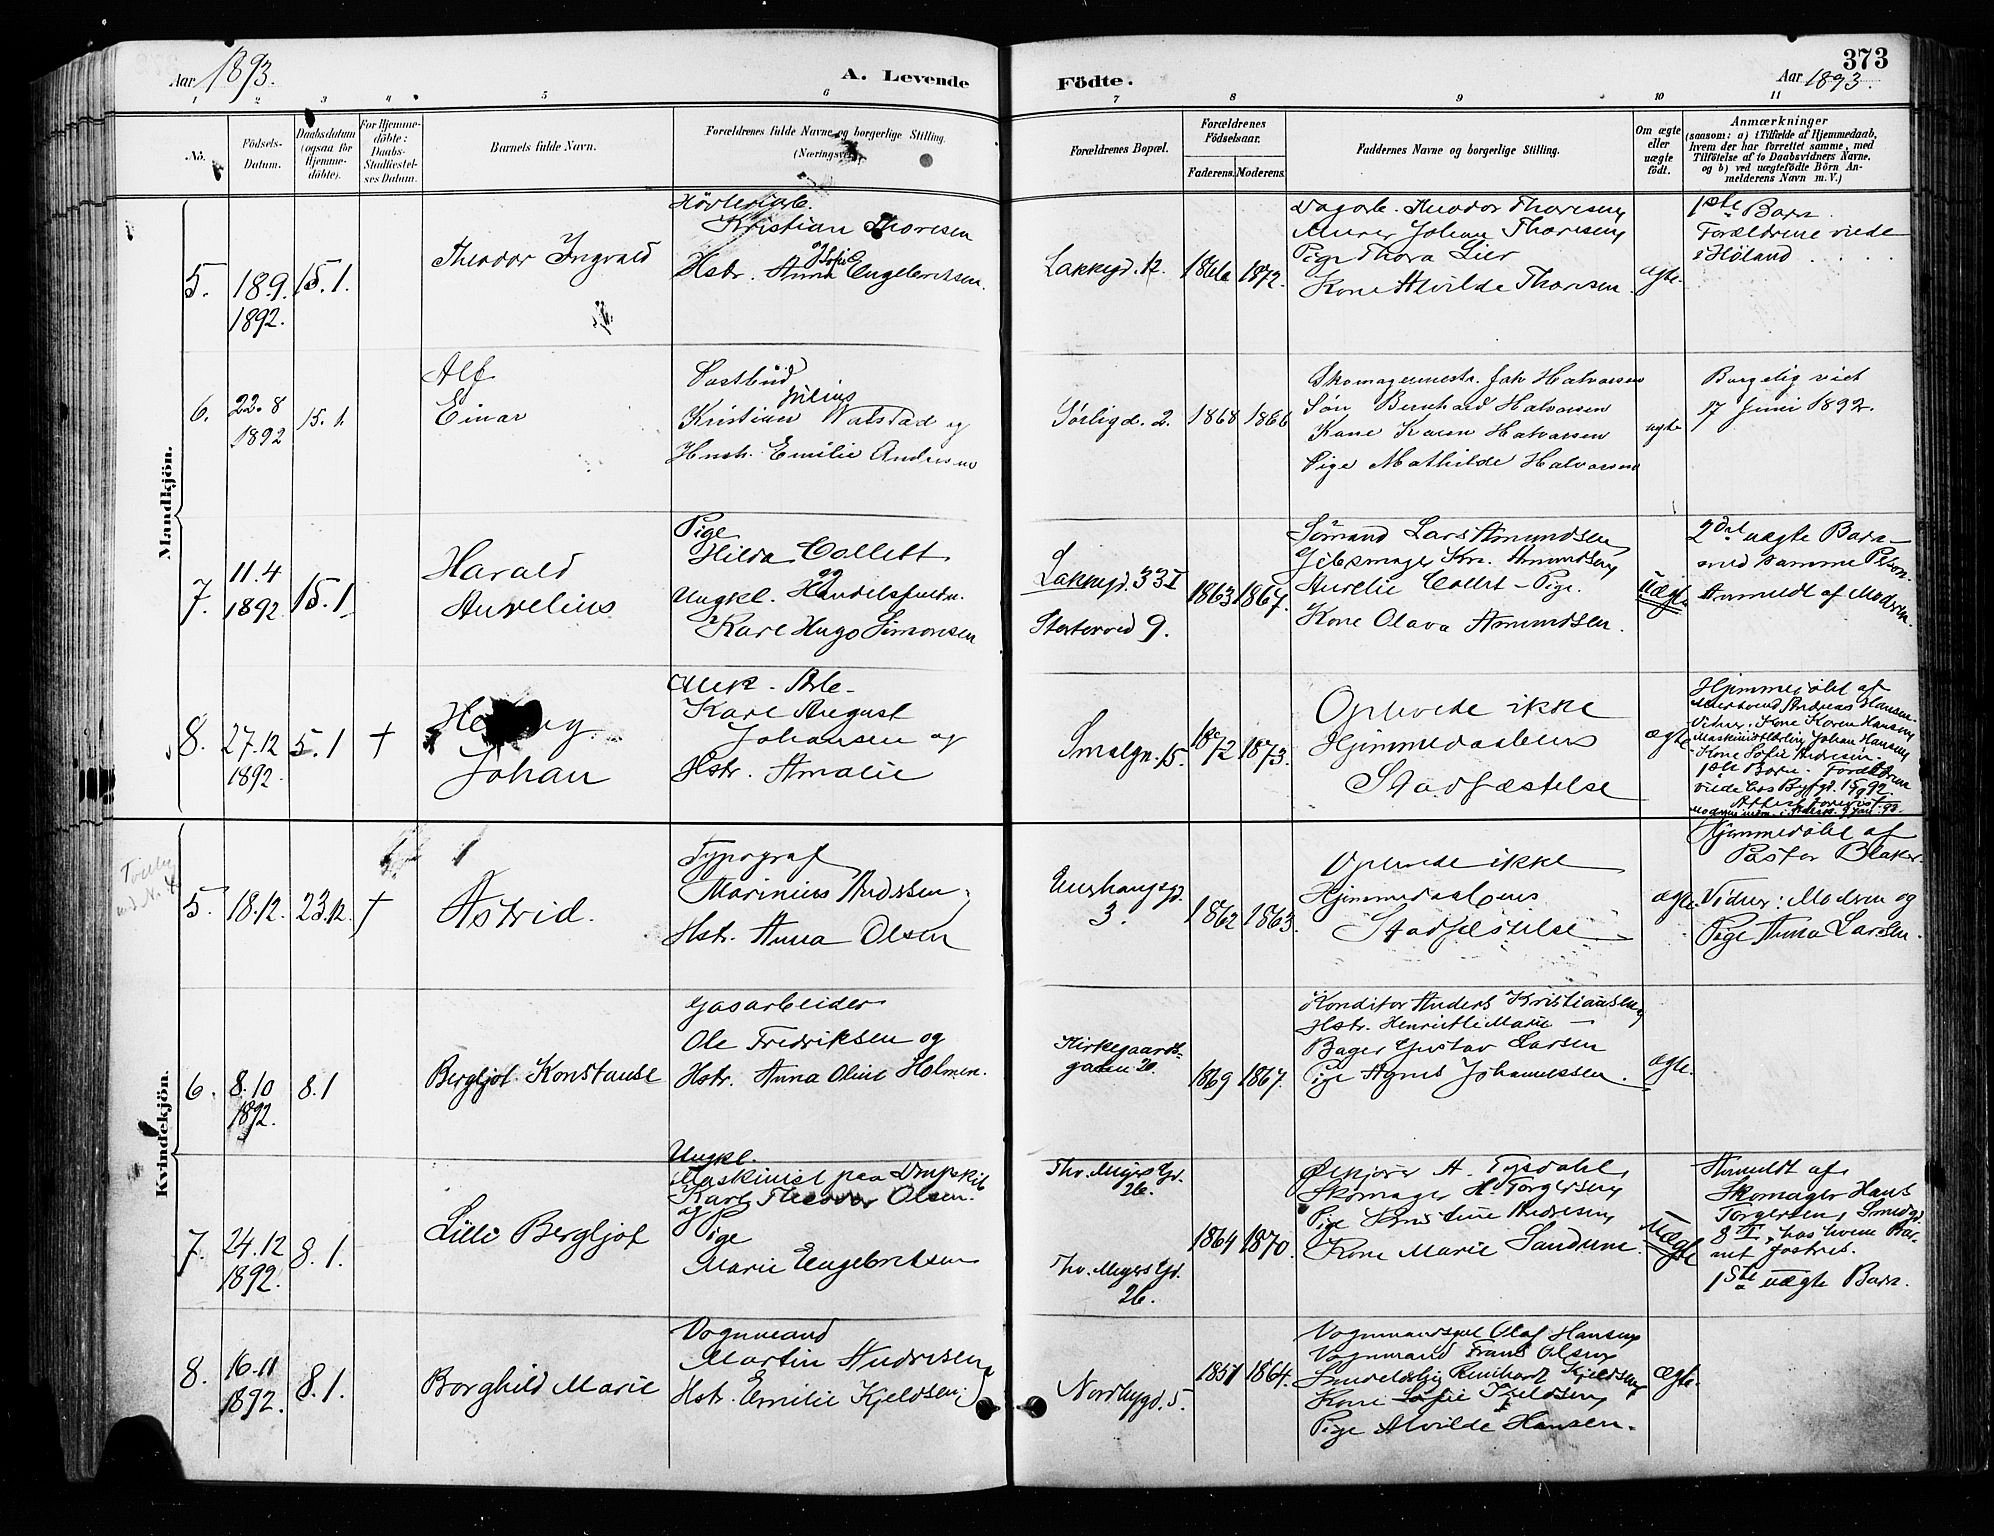 373
Aar 1893.
A. Levende Födte.
Aar 1893.
1 2 3 4 5 6 7 8 9 10 11
No.
Födsels-Datum.
Daabsdatum (ogsaa for Hjemmedöbte).
For Hjemmedöbte: Daabs-Stadfæstelses Datum.
Barnets fulde Navn.
Forældrenes fulde Navne og borgerlige Stilling. (Næringsvei).
Forældrenes Bopæl.
Forældrenes Födselsaar.
Faderens. Moderens.
Faddernes Navne og borgerlige Stilling.
Om ægte eller uægte födt.
Anmærkninger
(saasom: a) i Tilfælde af Hjemmedaab, hvem der har forrettet samme, med Tilföielse af to Daabsvidners Navne, og b) ved uægtefödte Börn Anmelderens Navn m. V.)
Mandkjön.
5.
18.9.
1892.
15.1.
Theodor Ingvald
Kristian Thoresen
og Sofie
Hstr. Anna Engebretsen.
Lakkegd. 12.
1872.
Dagarb. Theodor Thoresen,
Murer Johan Thoresen,
Pige Thora Lier
Kone Alvilde Thoresen
ægte.
1ste Barn.
Forældrene viede
i Høland
6.
22.8
1892
15.1
Alf
Einar
Postbud
Julius
Kristian Walstad og
Hustr. Emilie Andersen
Sørligd. 2.
1868
1866
Skomagermestr. Joh Halvorsen
Søn Bernhard Halvorsen
Kone Karen Halvorsen
Pige Mathilde Halvorsen
ægte
Borgelig viet
17 Juni 1892.
7.
11.4
1892
15.1
Harald
Aurelius
Pige
Hilda Collett
og
Ungkl. Handelsfuldm.
Karl Hugo Simonsen
Lakkegd. 33 I
Storterved 9.
1863
1867.
Sømand Lars Amundsen,
Gibsmager Kr. Amundsen,
Aurelie Collet - Pige.
Kone Olava Amundsen.
Uægte
2det uægte Barn
med samme Person.
Anmeldt af Modren.
8.
27.12
1892.
5.1
+
Johan
Mek. Arb.
Karl August
Johansen og
Hstr. Amalie
Smalgn. 15.
1872
1873.
Oplevede ikke
Hjemmedaabens
Stadfæstelse
ægte
Hjemmedøbt af
Andreas Hansen.
Vidner: Kone Karen Hansen,
Johan Hansen,
Kone Sofie Andresen.
1ste Barn. Forældrene
viede hos Byfgd. 15/9 92.
Kvindekjön.
5.
18.12.
23.12.
+
Astrid.
Typograf
Marinius Andersen,
Hstr. Anna Olsen
3.
1862
1863.
Oplevede ikke
Hjemmedaabens
Stadfæstelse
ægte.
Hjemmedøbt af
Pastor Blaker.
Vidner: Modren og
Pige Anna Larsen.
6.
8.10
1892.
8.1
Bergljot Konstanse
Gasarbeider
Ole Fredriksen og
Hstr. Anna Oline Holmen.
Kirkegaards-
gaden 20.
1869
1867.
Konditor Anders Kristiansen,
Hstr. Henriette Marie —
Bager Gustav Larsen
Pige Agnes Johannessen.
ægte.
7.
24.12
1892.
8.1.
Lilli Bergljot
Ungkl.
Maskinist paa Dmpskib
Karl Theodor Olsen.
og
Pige
Marie Engebretsen
Thv. Meyers Gd.
26.
Thv. Meyers Gd.
26.
1864
1870.
A. Tysdahl,
Skomager H. Torgersen,
Pige Kristine Andresen,
Kone Marie Sandum
Uægte
Anmeldt af
Skomager Hans
Torgersen, Smedgd.
8 I, hos hvem Bar-
net fostres.
1ste uægte Barn.
8.
16.11
1892.
8.1.
Borghild Marie
Vognmand
Martin Andresen,
Hstr. Emilie Kjeldsen.
Nordbygd. 5.
1851
1864.
Olaf Hansen,
Vognmand Frants Olsen,
Reinhart Kjeldsen,
Kone Sofie Kjeldsen,
Pige Alvilde Hansen.
ægte.